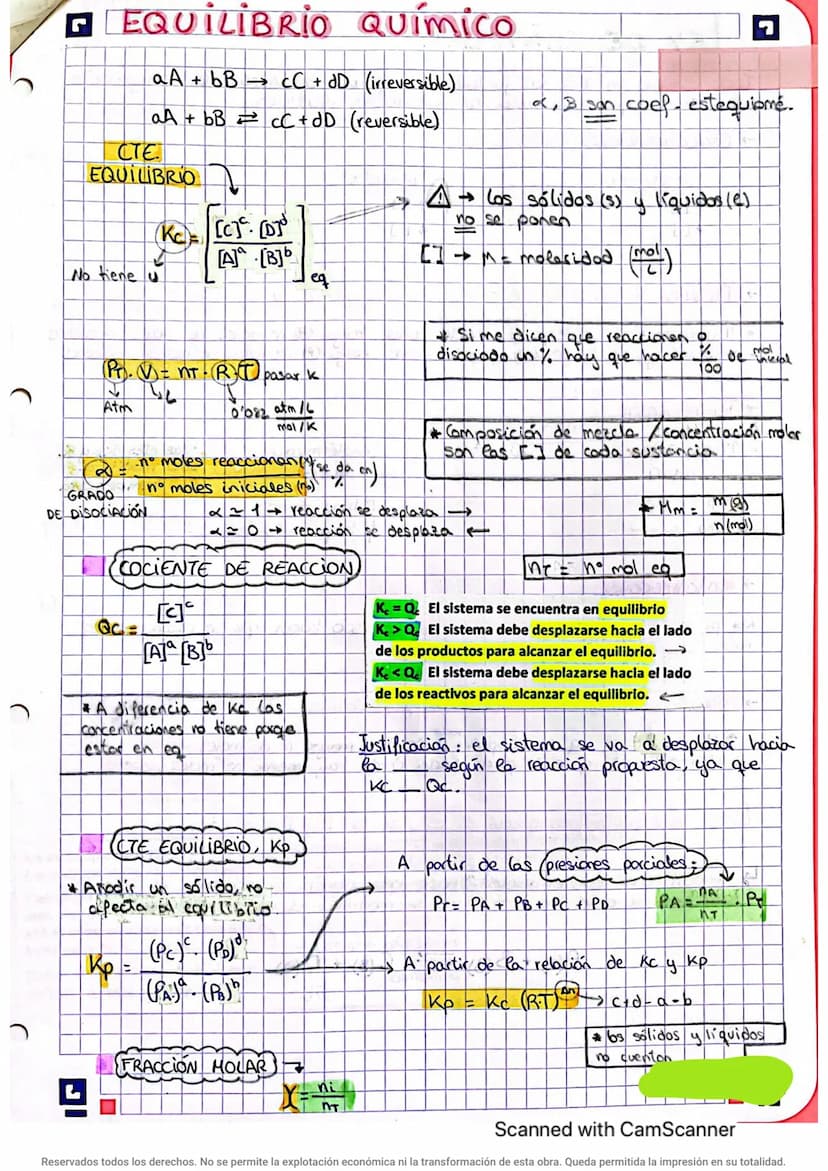 EQUILIBRIO QUÍMICO
aA + bB → cC + dD (irreversible)
aA + bB ⇄ cC + dD (reversible)
α, B son coef. estequiomé.
CTE.
EQUILIBRIO
Kc = [ [C]^c · [D]^d / [A]^a · [B]^b ] eq
No tiene u
⚠ → Los sólidos (s) y líquidos (l)
no se ponen
[ ] → M = molaridad (mol/L)
* Si me dicen que reaccionen o
disociado un % hay que hacer %/100 de mol inicial
PT · V = nT · R · T pasar K
Atm L 0'082 atm/L
mol/K
* Composición de mezcla / concentración molar
son las [ ] de cada sustancia
α = nº moles reaccionan (x) / nº moles iniciales (n₀) (se da en %)
GRADO
DE DISOCIACIÓN
α ≃ 1 → reacción se desplaza →
α ≃ 0 → reacción se desplaza ←
* Mm = m(g) / n(mol)
nT = nº mol eq
COCIENTE DE REACCIÓN
Qc = [C]^c / [A]^a [B]^b
Kc = Qc El sistema se encuentra en equilibrio
Kc > Qc El sistema debe desplazarse hacia el lado
de los productos para alcanzar el equilibrio. →
Kc < Qc El sistema debe desplazarse hacia el lado
de los reactivos para alcanzar el equilibrio. ←
* A diferencia de Kc las
concentraciones no tiene porqe
estar en eq
Justificación: el sistema se va a desplazar hacia
la ___ según la reacción propuesta, ya que
Kc __ Qc.
CTE EQUILIBRIO, Kp
* Añadir un sólido, no
afecta al equilibrio
Kp = (Pc)^c · (PD)^d / (PA)^a · (PB)^b
A partir de las presiones parciales:
PT = PA + PB + PC + PD
PA = nA / nT · PT
A partir de la relación de Kc y Kp
Kp = Kc (RT)^Δn → c+d-a-b
* los sólidos y líquidos
no cuentan
FRACCIÓN MOLAR
X = ni / nT
Scanned with CamScanner
Reservados todos los derechos. No se permite la explotación económica ni la transformación de esta obra. Queda permitida la impresión en su totalidad.